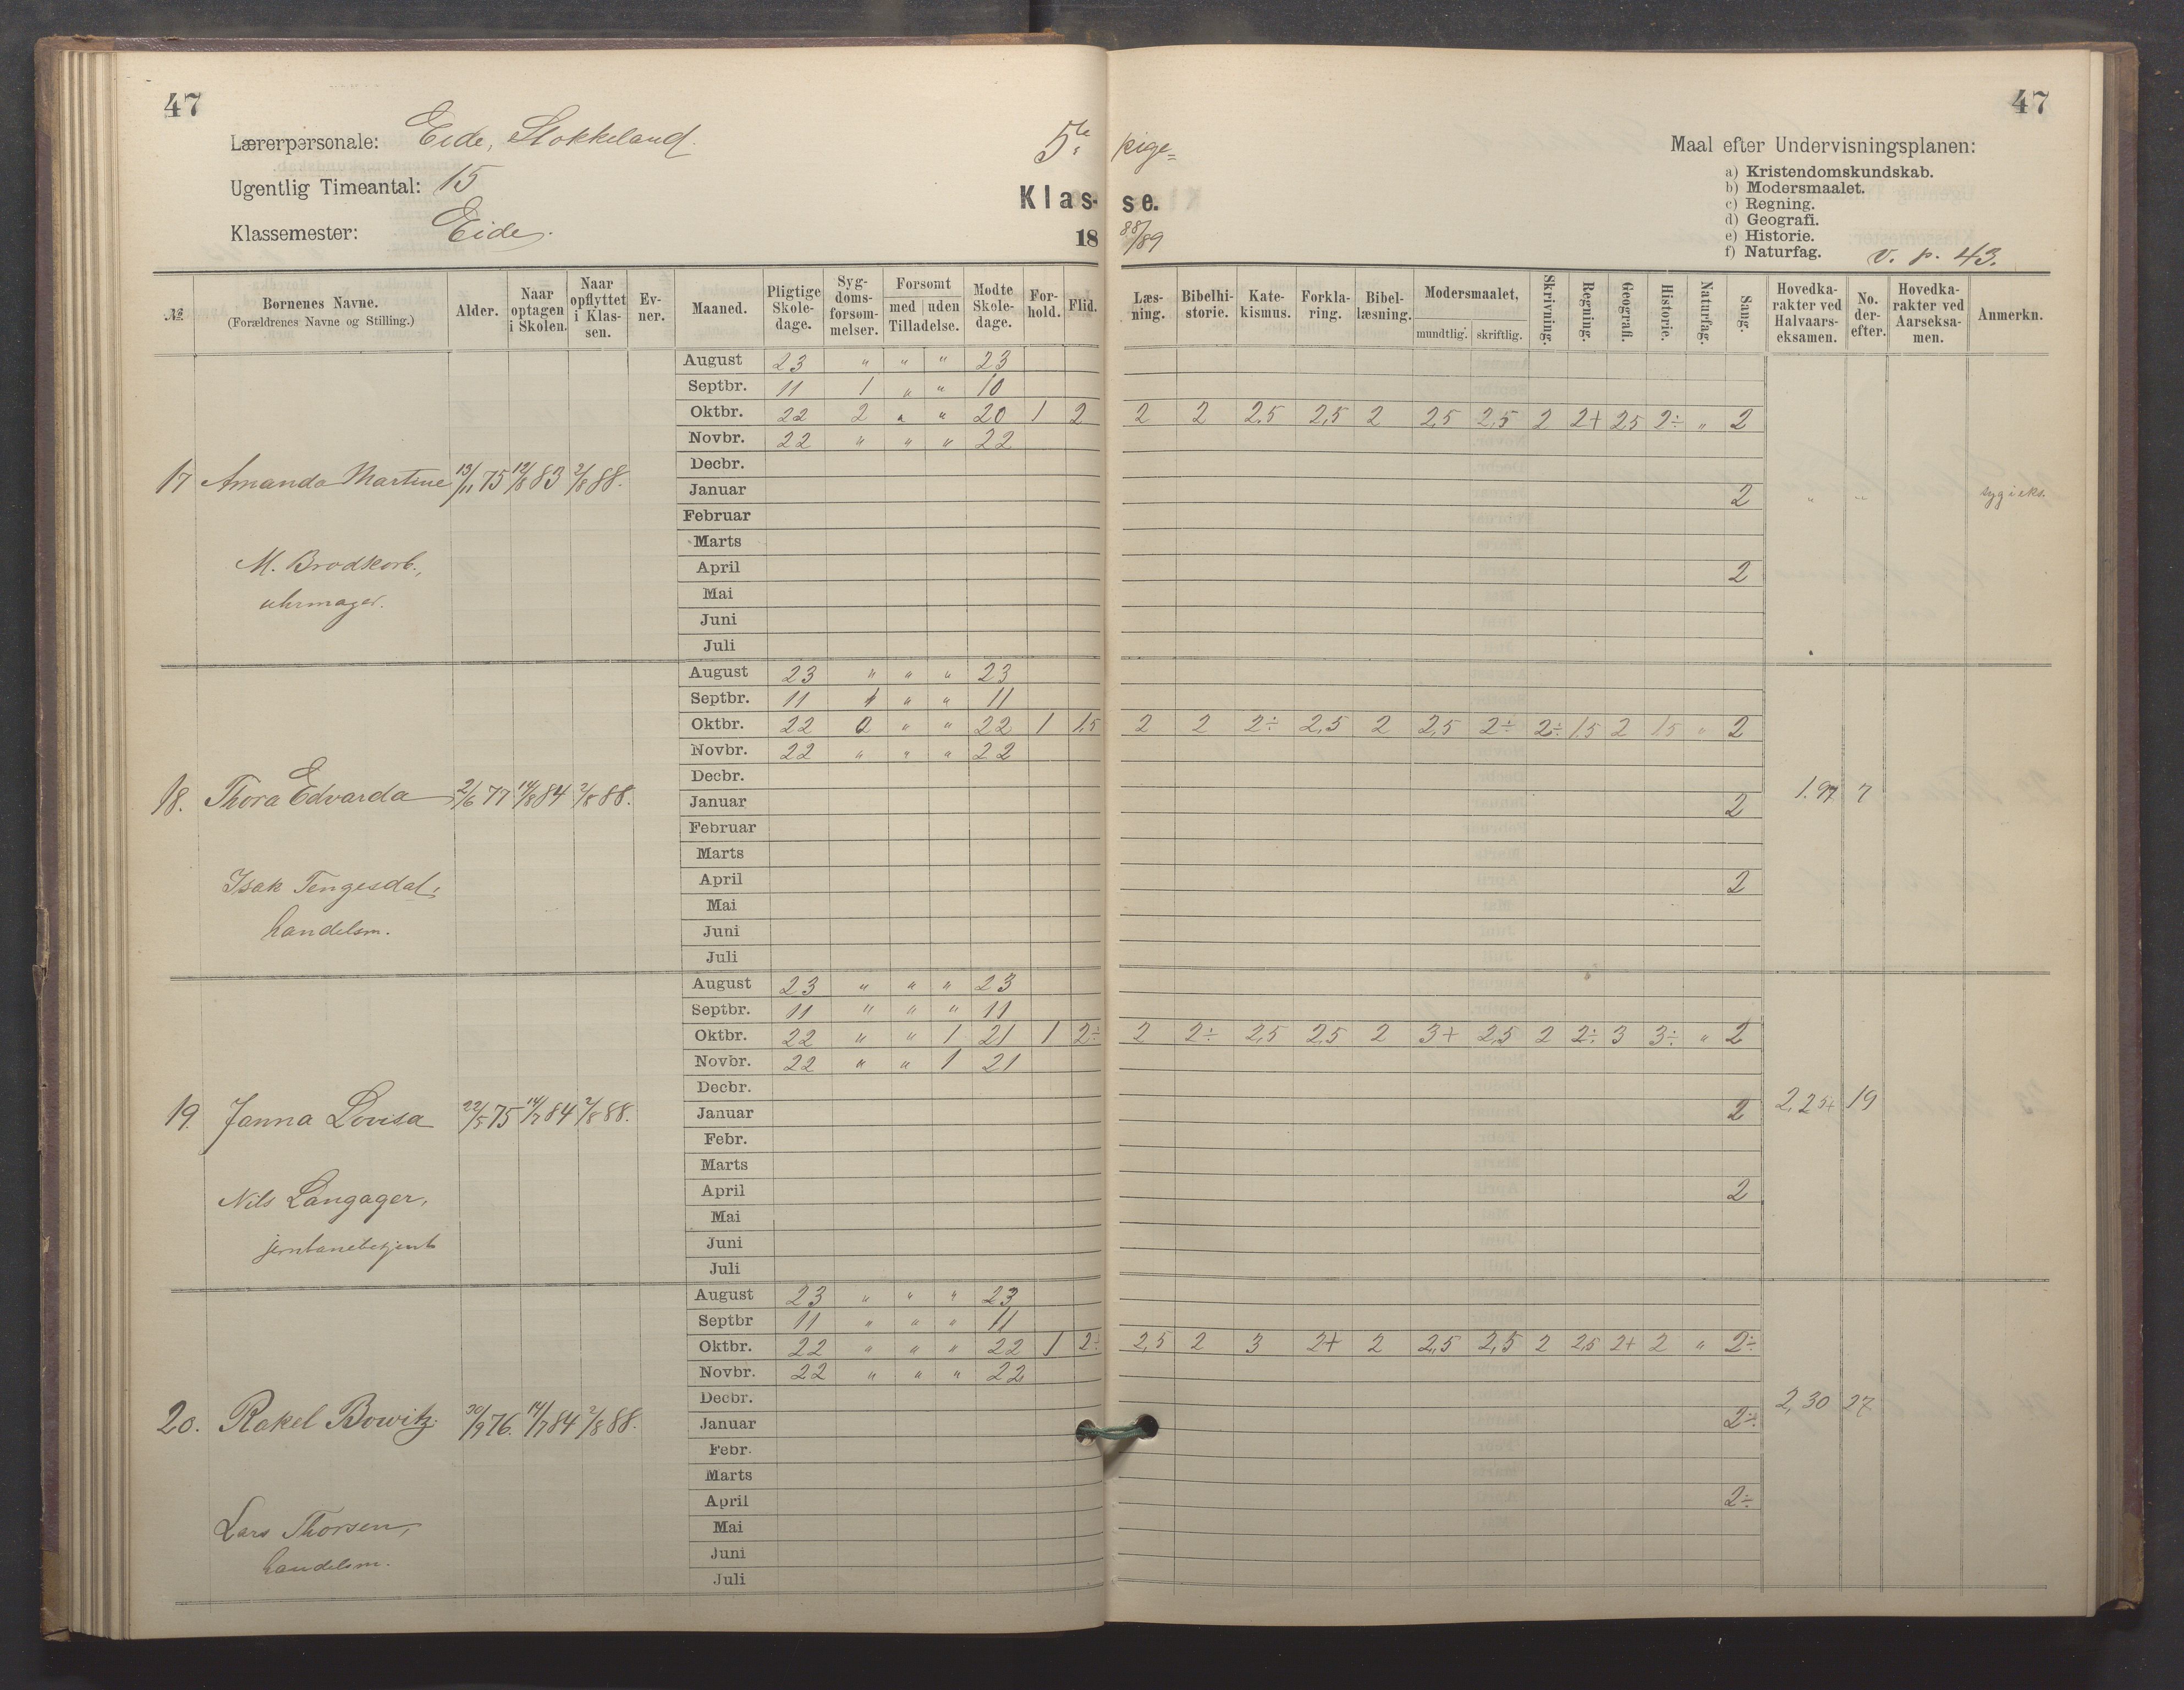 47
47
Lærerpersonale: Eide, Stokkeland.
5te pige=
Ugentlig Timeantal: 15
Klas- se.
Klassemester: Eide.
18 88/89
Maal efter Undervisningsplanen:
a) Kristendomskundskab.
b) Modersmaalet.
c) Regning.
d) Geografi.
e) Historie.
f) Naturfag. v. p. 43.
№ Børnenes Navne. (Forældrenes Navne og Stilling.) Alder. Naar optagen i Skolen. Naar opflyttet i Klassen. Evner. Maaned. Pligtige Skoledage. Sygdomsforsømmelser. Forsømt med uden Tilladelse. Mødte Skoledage. Forhold. Flid. Læsning. Bibelhistorie. Katekismus. Forklaring. Bibellæsning. Modersmaalet, mundtlig. skriftlig. Skrivning. Regning. Geografi. Historie. Naturfag. Sang. Hovedkarakter ved Halvaarseksamen. No. derefter. Hovedkarakter ved Aarseksamen. Anmerkn.
August 23 " " " 23
Septbr. 11 1 " " 10
Oktbr. 22 2 " " 20 1 2 2 2 2,5 2,5 2 2,5 2,5 2 2+ 2,5 2÷ " 2
Novbr. 22 " " " 22
Decbr.
17 Amanda Martine 13/11 75 12/8 83 2/8 88.
Januar 2 " " syg i eks.
Februar
Marts
M. Brodkorb.,
April 2
uhrmager.
Mai
Juni
Juli
August 23 " " " 23
Septbr. 11 " " 11
Oktbr. 22 0 " " 22 1 1,5 2 2 2÷ 2,5 2 2,5 2÷ 2÷ 1,5 2 1,5 " 2
Novbr. 22 " " " 22
Decbr.
18. Thora Edvarda 2/6 77 14/8 84 2/8 88.
Januar 2 1.97 7
Februar
Marts
Isak Tengesdal,
April 2
handelsm.
Mai
Juni
Juli
August 23 " " " 23
Septbr. 11 " " " 11
Oktbr. 22 " " 1 21 1 2÷ 2 2÷ 2,5 2,5 2 3+ 2,5 2 2÷ 3 3÷ " 2
Novbr. 22 " " 1 21
Decbr.
19. Janna Lovisa 22/5 75 14/7 84 2/8 88.
Januar 2 2,25+ 19
Febr.
Marts
Nils Langager,
April 2
jernbanebetjent
Mai
Juni
Juli
August 23 " " " 23
Septbr 11 " " " 11
Oktbr. 22 " " " 22 1 2÷ 2,5 2 3 2+ 2 2,5 2,5 2 2,5 2+ 2 " 2÷
Novbr. 22 " " " 22
Decbr.
20. Rakel Bowitz. 30/9 76. 14/7 84 2/8 88.
Januar 2÷ 2,30 27
Febr.
Marts
April 2÷
Lars Thorsen,
Mai
handelsm.
Juni
Juli